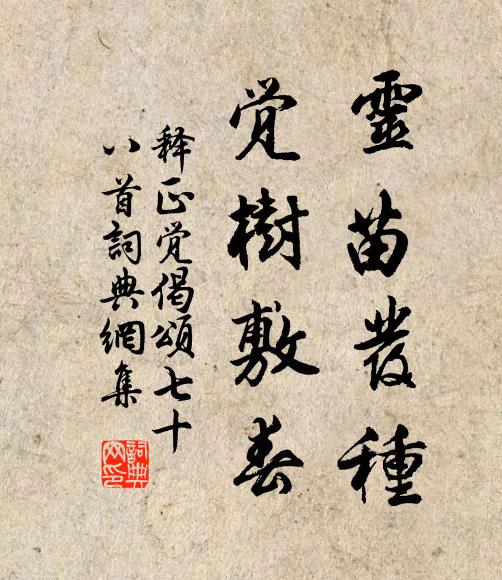 靈苗發種
覚樹敷春
释正覚偈頌七十
八首詞典網集
詞典
网印